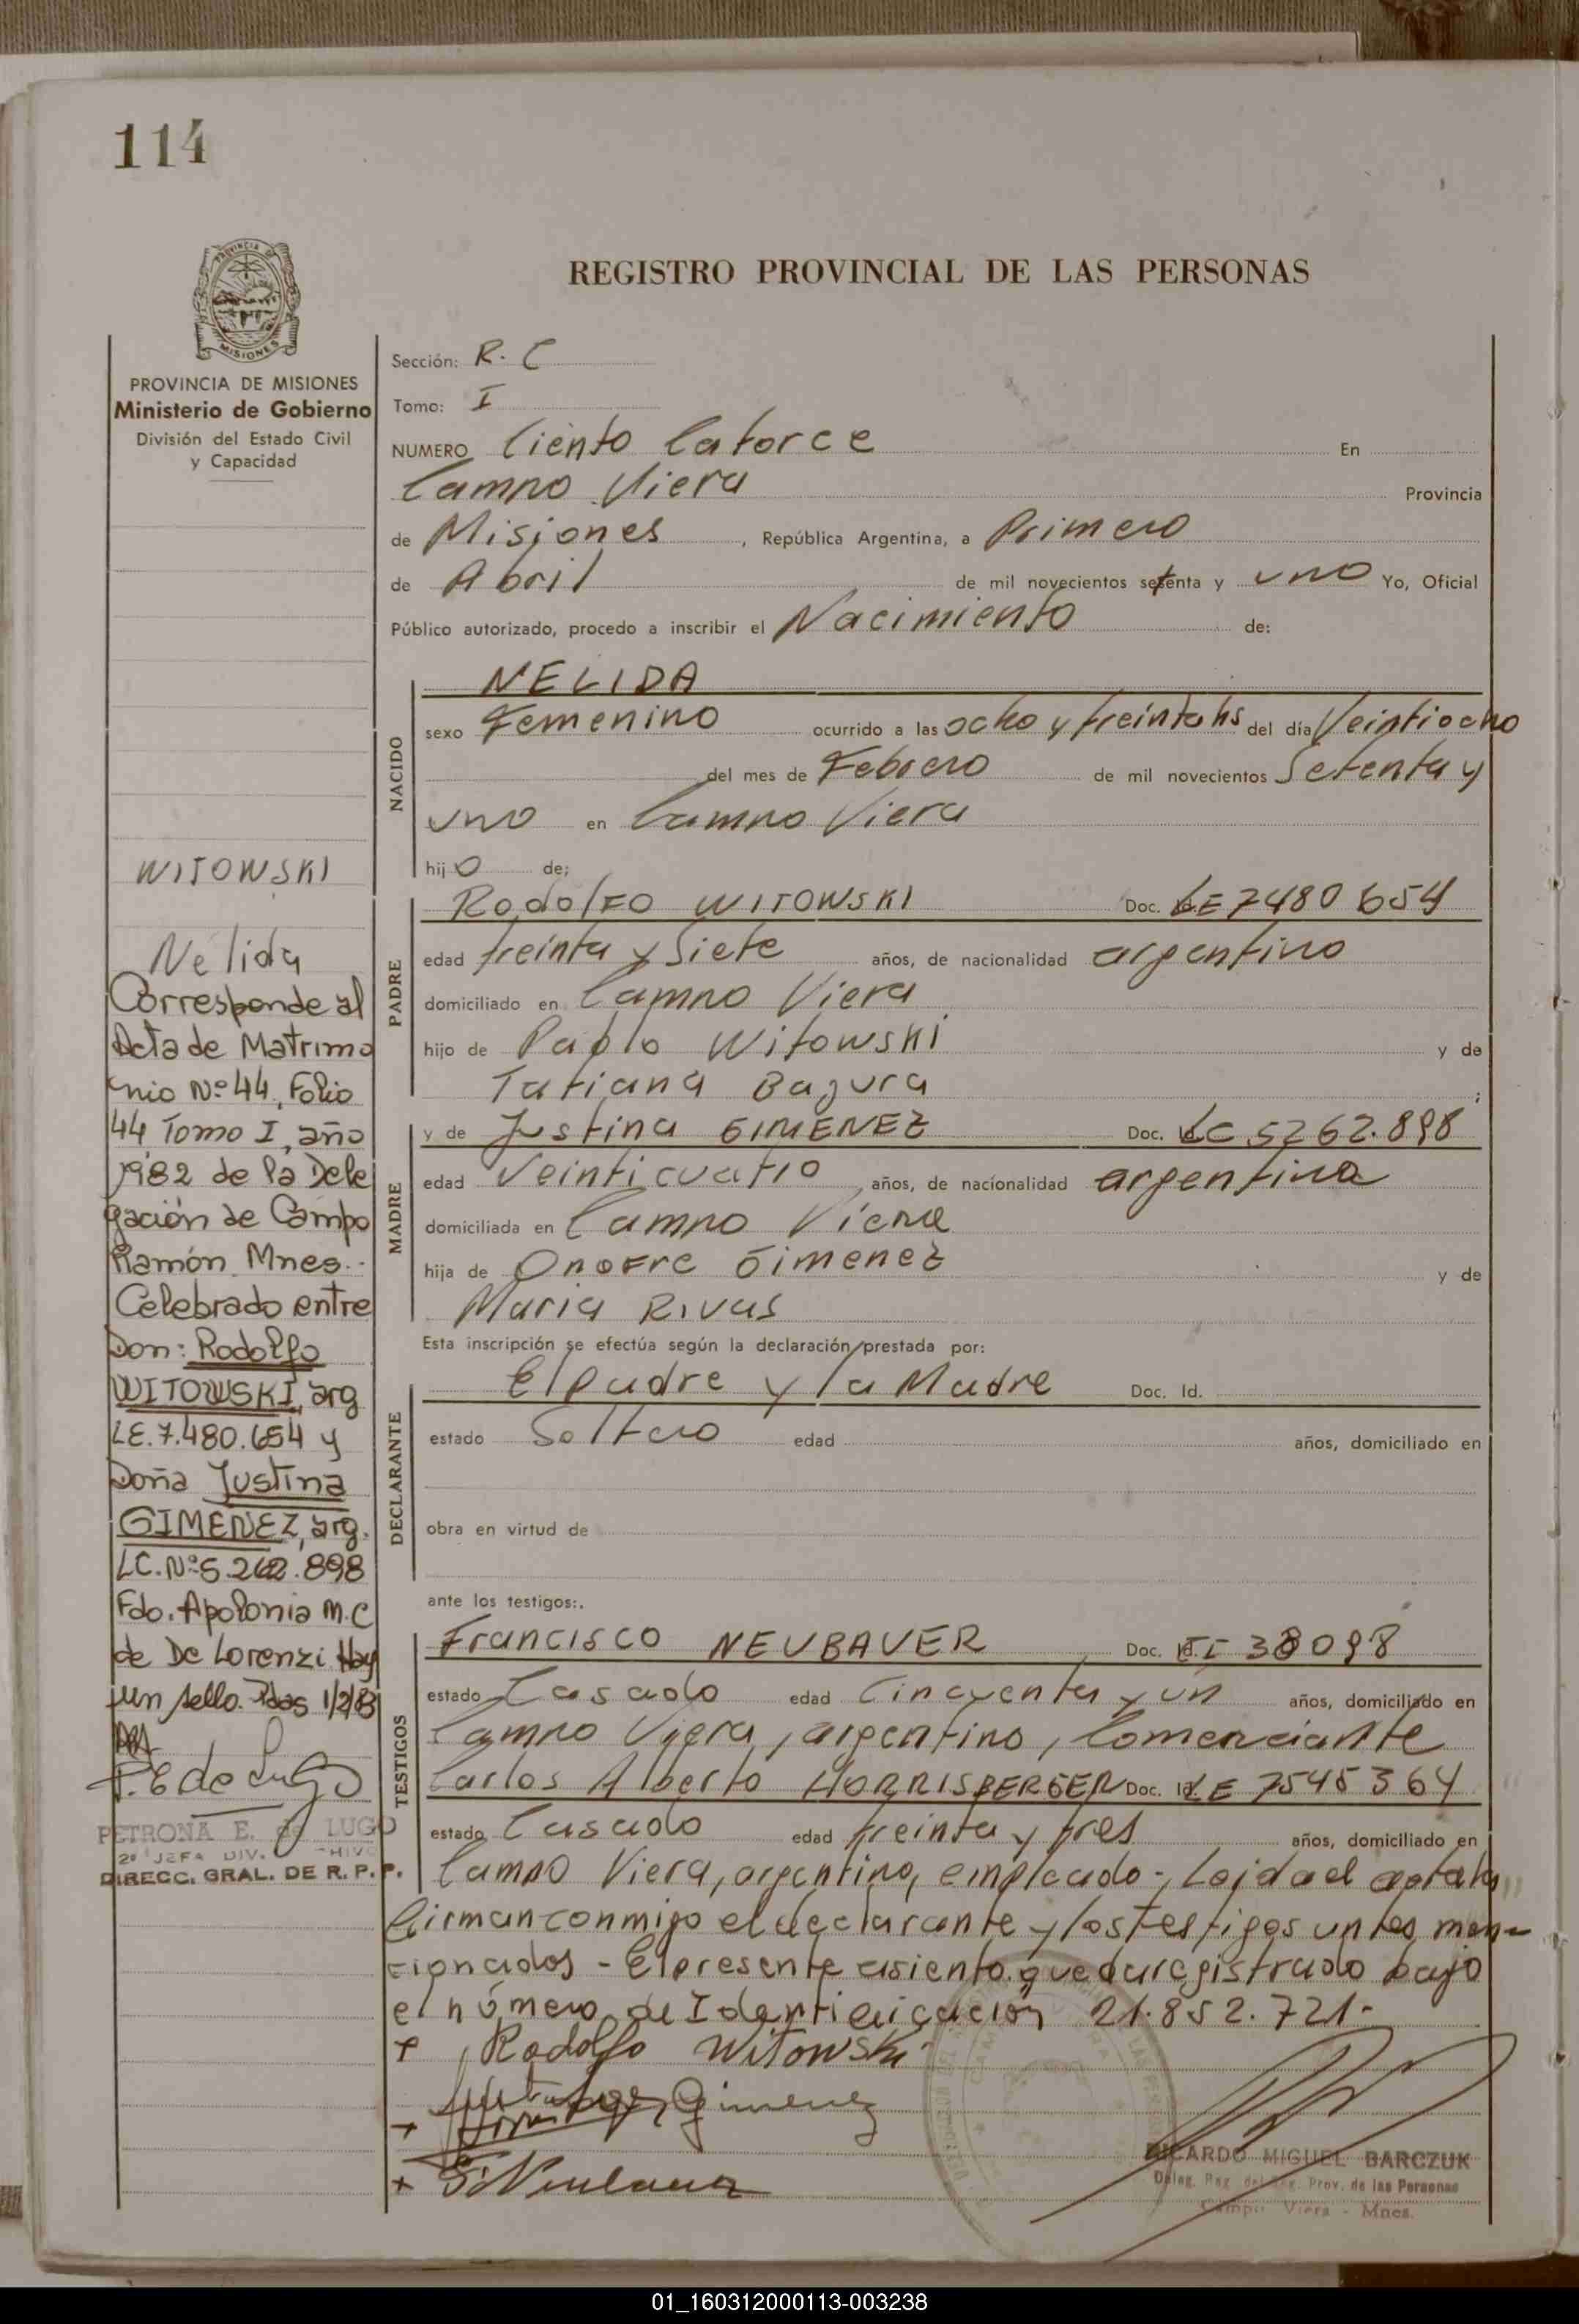 114
PROVINCIA DE
MISIONES
PROVINCIA DE MISIONES
Ministerio de Gobierno
División del Estado Civil
y Capacidad
REGISTRO PROVINCIAL DE LAS PERSONAS
Sección: R. C
Tomo: I
NUMERO Ciento Catorce En
Campo Viera Provincia
de Misiones, República Argentina, a Primero
de Abril de mil novecientos setenta y uno Yo, Oficial
Público autorizado, procedo a inscribir el Nacimiento de:
NACIDO
NELIDA
sexo Femenino ocurrido a las ocho y treinta hs del día Veintiocho
del mes de Febrero de mil novecientos Setenta y
uno en Campo Viera
hijo de;
PADRE
Rodolfo WITOWSKI Doc. LE 7480654
edad treinta y Siete años, de nacionalidad argentino
domiciliado en Campo Viera
hijo de Pablo Witowski y de
Tatiana Bazura ;
MADRE
y de Justina GIMENEZ Doc. LC 5262.898
edad Veinticuatro años, de nacionalidad argentina
domiciliada en Campo Viera
hija de Onofre Gimenez y de
Maria Rivas
Esta inscripción se efectúa según la declaración prestada por:
DECLARANTE
El padre y la Madre Doc. Id.
estado Soltero edad años, domiciliado en
obra en virtud de
ante los testigos:.
TESTIGOS
Francisco NEUBAUER Doc. 38098
estado Casado edad Cincuenta y un años, domiciliado en
Campo Viera, argentino, Comerciante
Carlos Alberto HORRISBERGER Doc. Id. LE 7545364
estado Casado edad treinta y tres años, domiciliado en
Campo Viera, argentino, empleado - Leida el acta la
firman conmigo el declarante y los testigos antes men-
cionados - El presente asiento queda registrado bajo
el número de Identificación 21.852.721-
+ Rodolfo Witowski
+ Gimenez
+ F. Neubauer
RICARDO MIGUEL BARCZUK
Deleg. Reg. del Reg. Prov. de las Personas
Campo Viera - Mnes.
WITOWSKI
Nélida
Corresponde al
Acta de Matrimo
nio Nº 44, Folio
44 Tomo I, año
1982 de la Dele
gación de Campo
Ramón Mnes.-
Celebrado entre
Don: Rodolfo
WITOWSKI, arg
LE. 7.480.654 y
Doña Justina
GIMENEZ, arg.
LC. Nº 5.262.898
Fdo. Apolonia M. C
de De Lorenzi Hay
un sello. Pdas 1/2/83
P. E de Lugo
PETRONA E. de LUGO
2º JEFA DIV. ARCHIVO
DIRECC. GRAL. DE R. P. P.
01_160312000113-003238